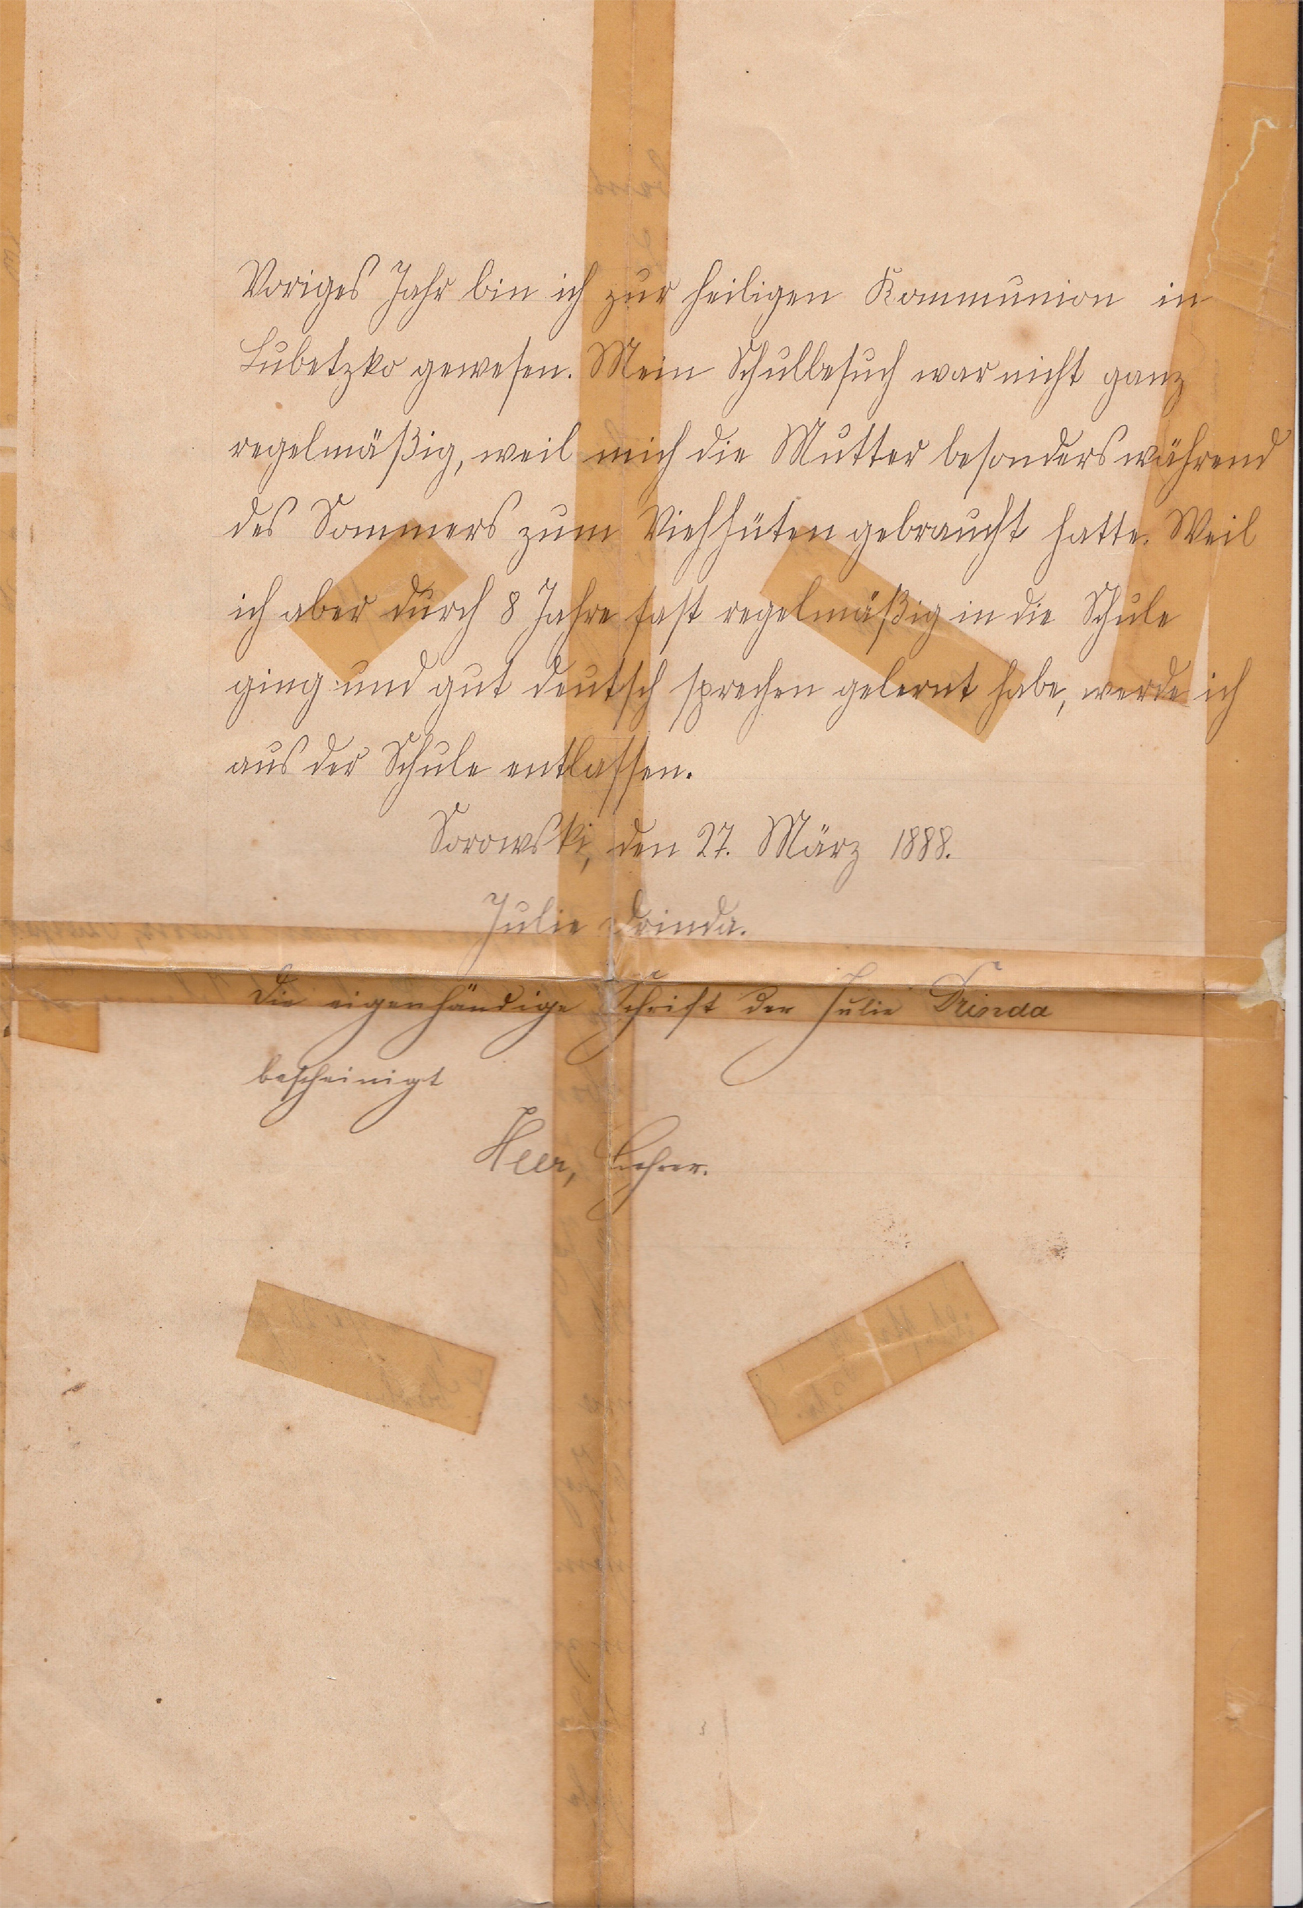 Voriges Jahr bin ich zur heiligen Kommunion in
Lubetzko gewesen. Mein Schulbesuch war nicht ganz
regelmäßig, weil mich die Mutter besonders während
des Sommers zum Viehhüten gebraucht hatte. Weil
ich aber durch 8 Jahre fast regelmäßig in die Schule
ging und gut deutsch sprechen gelernt habe, werde ich
aus der Schule entlassen.
Sorowski, den 27. März 1888.
Julie Drinda.
Die eigenhändige Schrift der Julie Drinda
bescheinigt
Heer, Lehrer.